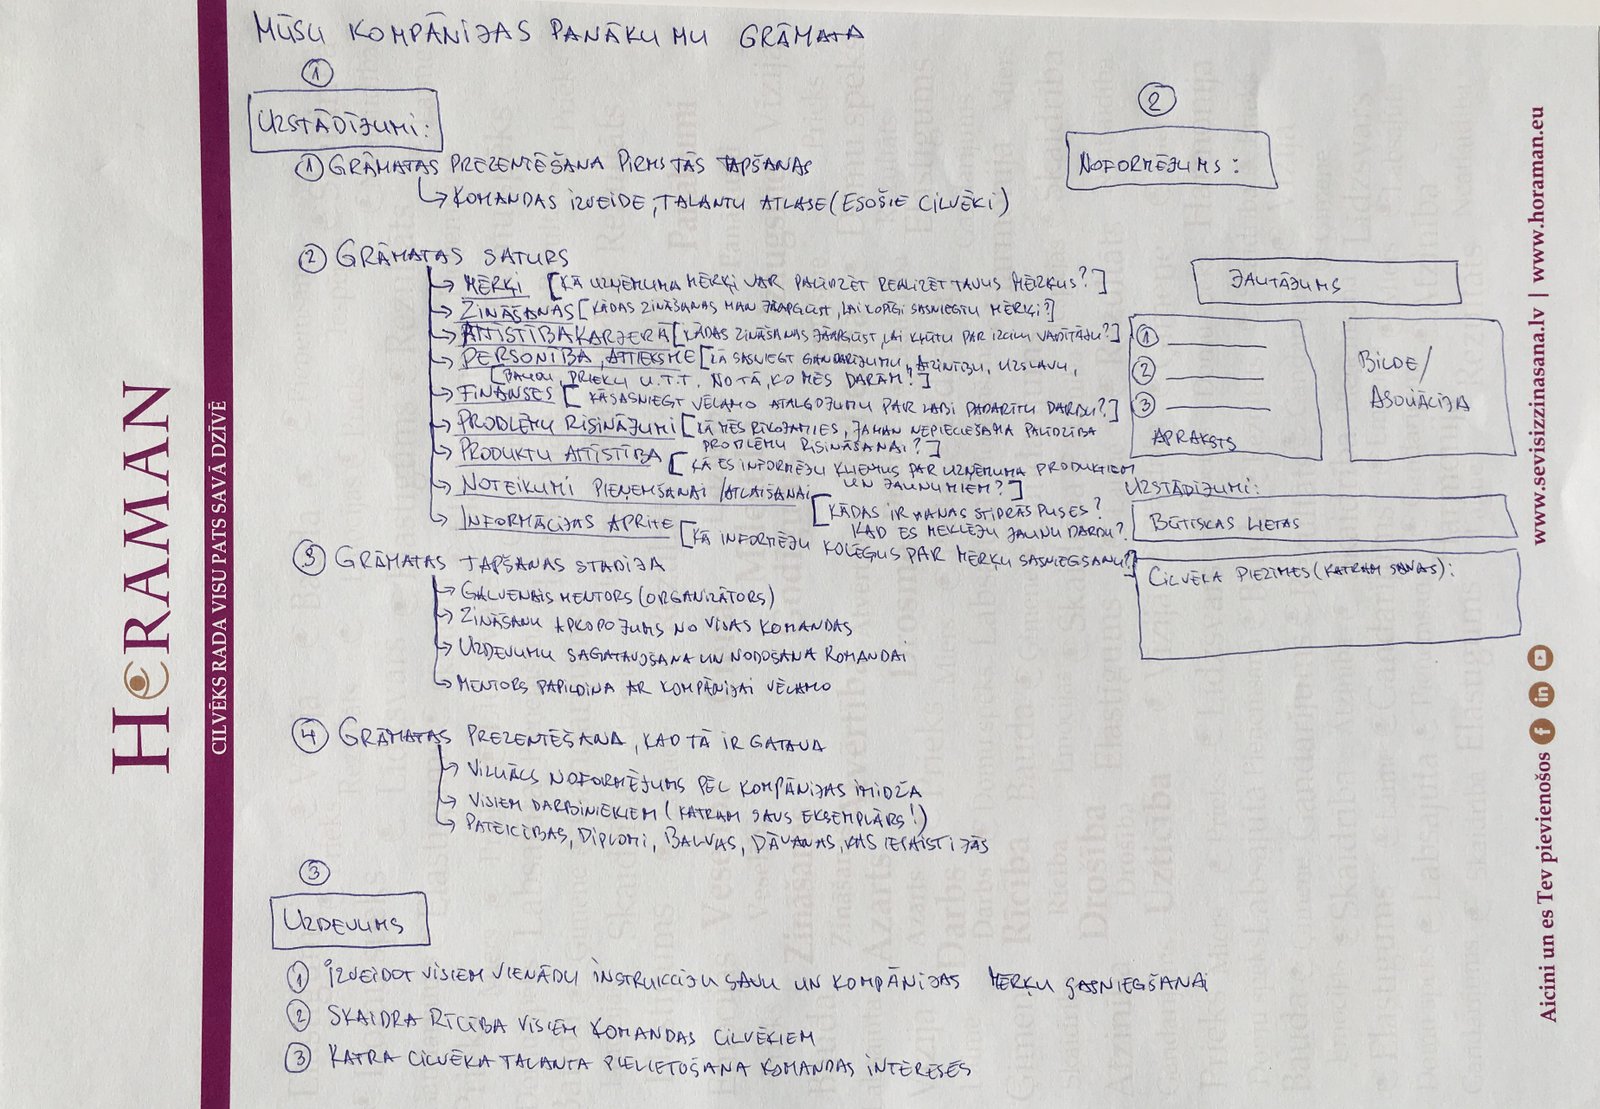 MŪSU KOMPĀNIJAS PANĀKUMU GRĀMATA
①
UZSTĀDĪJUMI:
① GRĀMATAS PREZENTĒŠANA PIRMS TĀS TAPŠANAS
↳ KOMANDAS IZVEIDE, TALANTU ATLASE (ESOŠIE CILVĒKI)
② GRĀMATAS SATURS
→ MĒRĶI [KĀ UZŅĒMUMA MĒRĶI VAR PALĪDZĒT REALIZĒT TAVUS MĒRĶUS?]
→ ZINĀŠANAS [KĀDAS ZINĀŠANAS MAN JĀAPGŪST, LAI KOPĪGI SASNIEGTU MĒRĶI?]
→ ATTĪSTĪBA KARJERĀ [KĀDAS ZINĀŠANAS JĀAPGŪST, LAI KĻŪTU PAR IZCILU VADĪTĀJU?]
→ PERSONĪBA, ATTIEKSME [KĀ SASNIEGT GANDARĪJUMU, ATZINĪBU, UZSLAVU,
BAUDU, PRIEKU U.T.T. NO TĀ, KO MĒS DARĀM?]
→ FINANSES [KĀ SASNIEGT VĒLAMO ATALGOJUMU PAR LABI PADARĪTU DARBU?]
→ PROBLĒMU RISINĀJUMI [KĀ MĒS RĪKOJAMIES, JA MAN NEPIECIEŠAMA PALĪDZĪBA
PROBLĒMU RISINĀŠANAI?]
→ PRODUKTU ATTĪSTĪBA [KĀ ES INFORMĒJU KLIENTUS PAR UZŅĒMUMA PRODUKTIEM
UN JAUNUMIEM?]
→ NOTEIKUMI PIEŅEMŠANAI/ATLAIŠANAI [KĀDAS IR MANAS STIPRĀS PUSES?
KAD ES MEKLĒJU JAUNU DARBU?
→ INFORMĀCIJAS APRITE [KĀ INFORMĒJU KOLĒĢUS PAR MĒRĶU SASNIEGŠANU?]
③ GRĀMATAS TAPŠANAS STADIJA
→ GALVENAIS MENTORS (ORGANIZĀTORS)
→ ZINĀŠANU APKOPOJUMS NO VISAS KOMANDAS
→ UZDEVUMU SAGATAVOŠANA UN NODOŠANA KOMANDAI
→ MENTORS PAPILDINA AR KOMPĀNIJAI VĒLAMO
④ GRĀMATAS PREZENTĒŠANA, KAD TĀ IR GATAVA
→ VIZUĀLS NOFORMĒJUMS PĒC KOMPĀNIJAS IMIDŽA
→ VISIEM DARBINIEKIEM (KATRAM SAVS EKSEMPLĀRS!)
→ PATEICĪBAS, DIPLOMI, BALVAS, DĀVANAS, KAS IESAISTĪJĀS
②
NOFORMĒJUMS:
JAUTĀJUMS
①
②
③
APRAKSTS
BILDE/
ASOCIĀCIJA
UZSTĀDĪJUMI:
BŪTISKAS LIETAS
CILVĒKA PIEZĪMES (KATRAM SAVAS):
③
UZDEVUMS
① IZVEIDOT VISIEM VIENĀDU INSTRUKCIJU SAVU UN KOMPĀNIJAS MĒRĶU SASNIEGŠANAI
② SKAIDRA RĪCĪBA VISIEM KOMANDAS CILVĒKIEM
③ KATRA CILVĒKA TALANTA PIELIETOŠANA KOMANDAS INTERESĒS
HORAMAN
CILVĒKS RADA VISU PATS SAVĀ DZĪVĒ
Aicini un es Tev pievienošos
www.sevisizzinasana.lv | www.horaman.eu